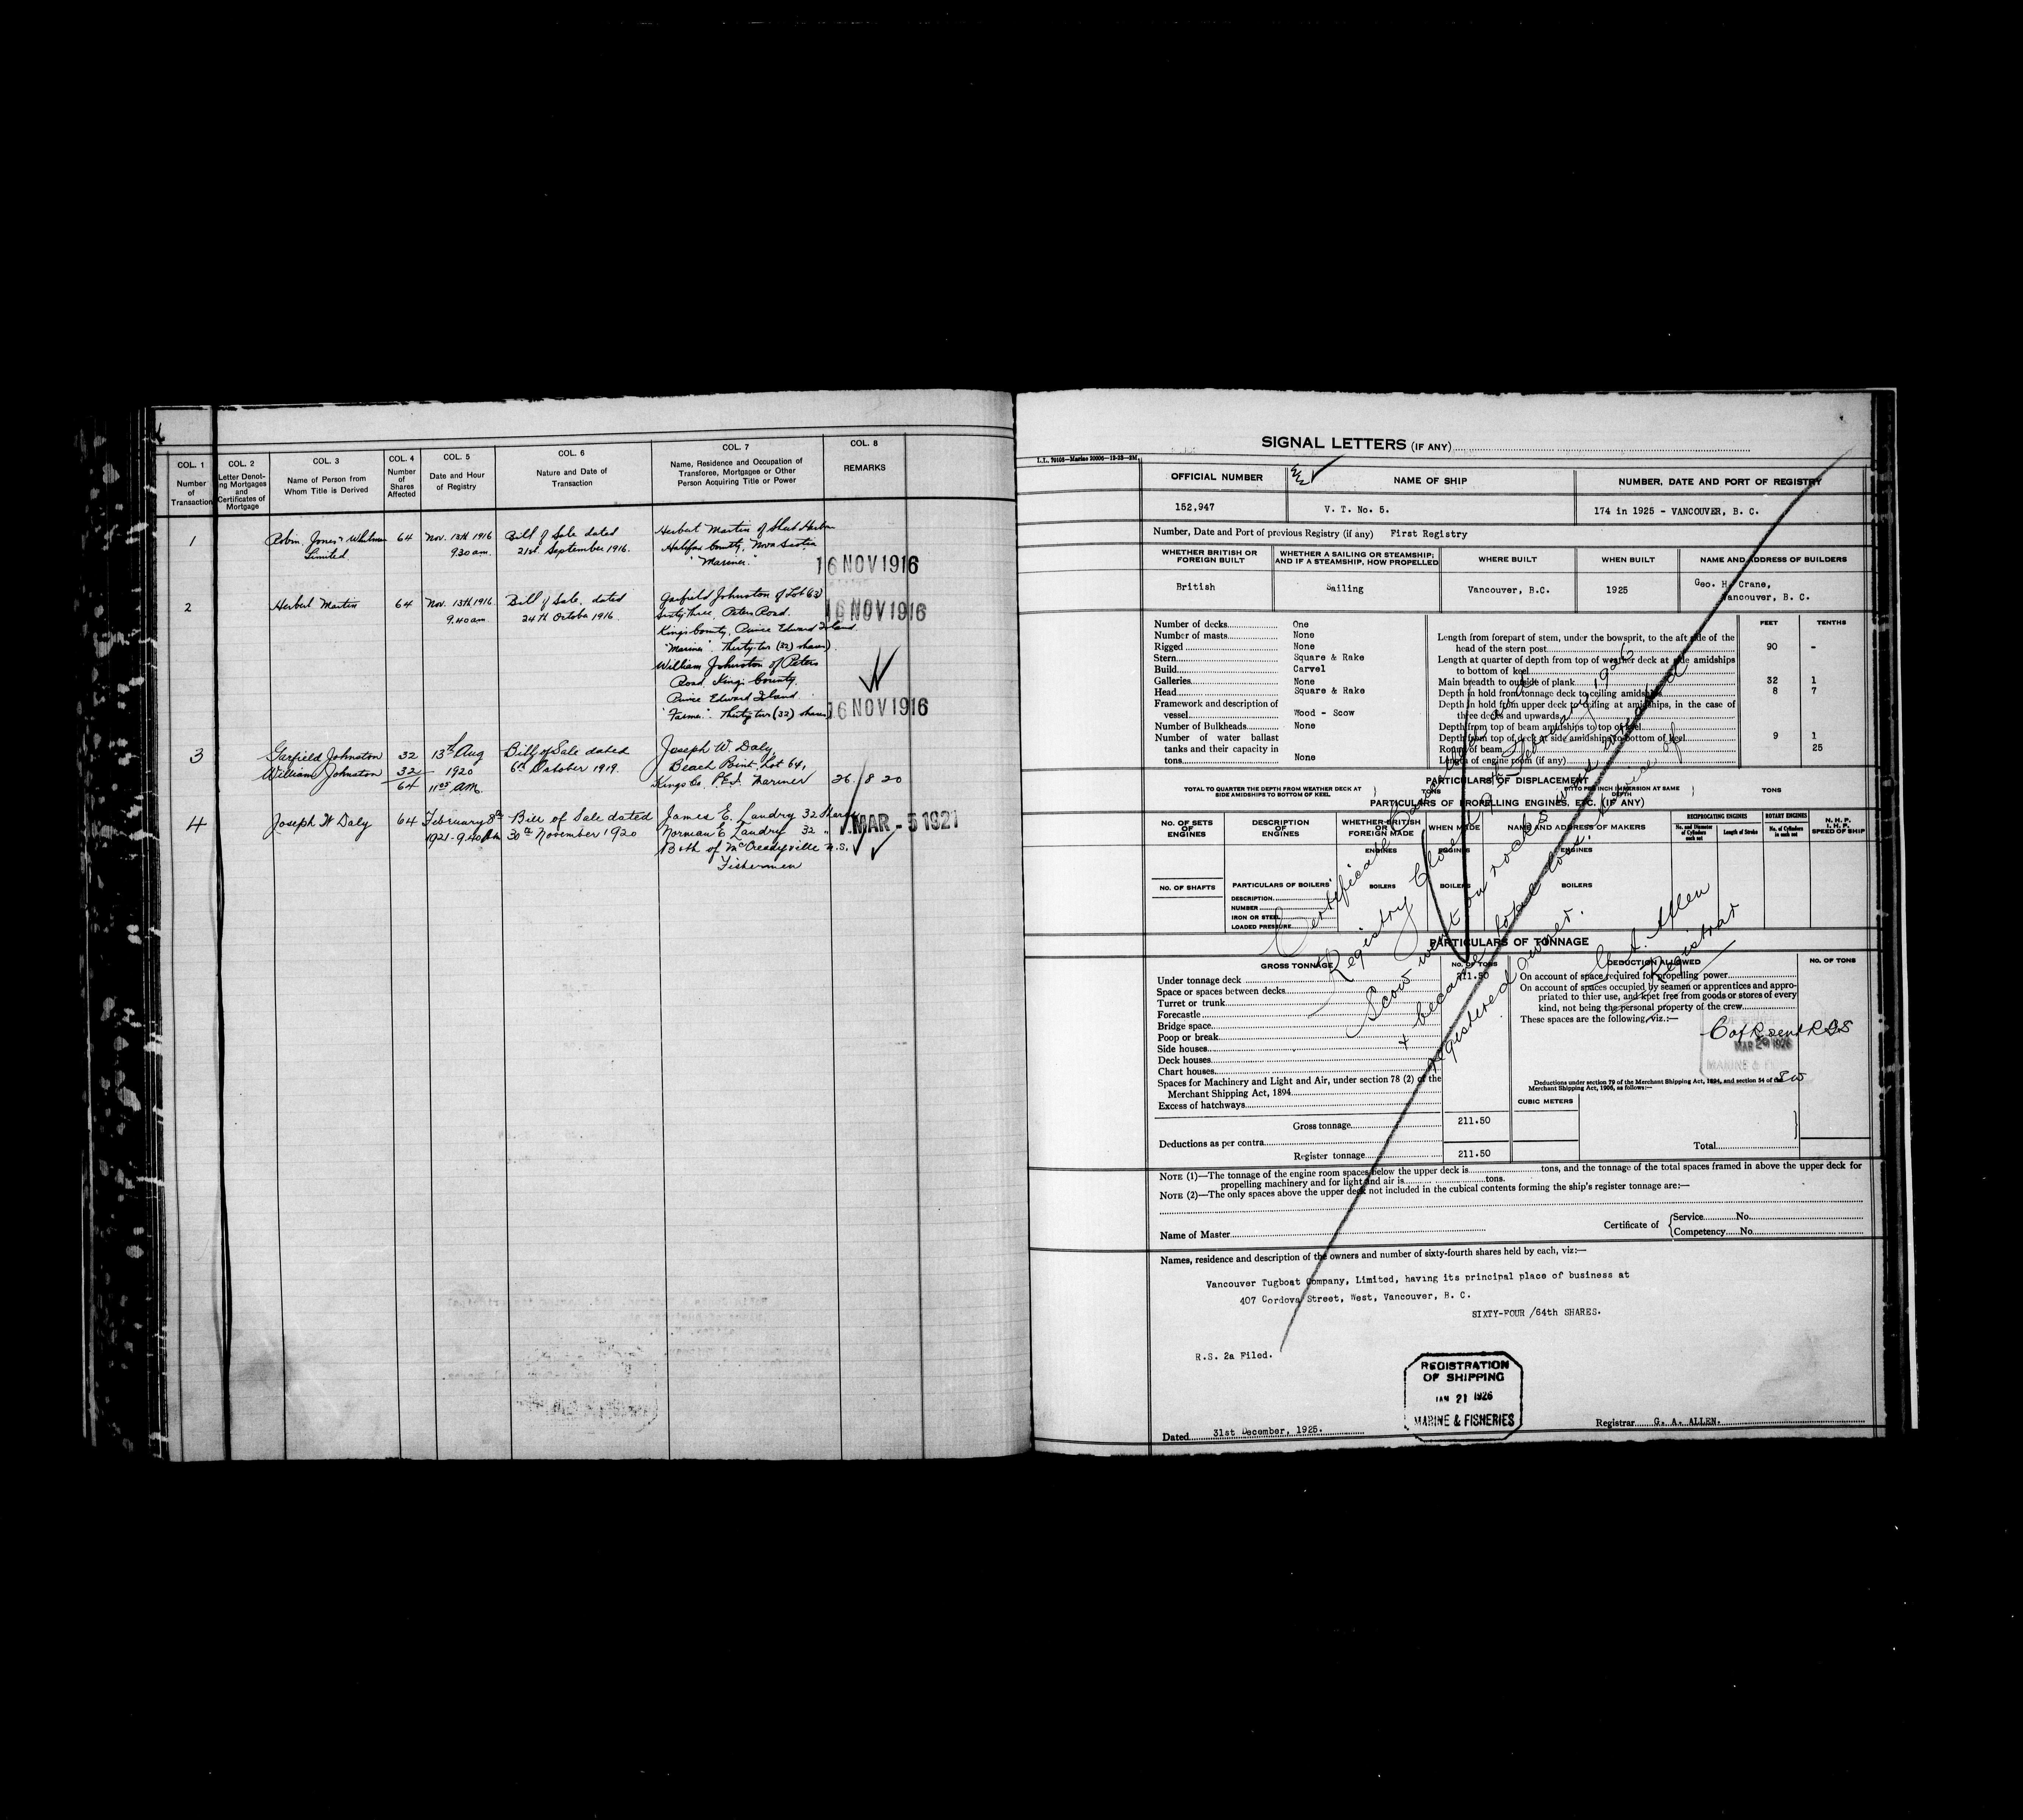 COL. 1 Number of Transaction
COL. 2 Letter Denot- ing Mortgages and Certificates of Mortgage
COL. 3 Name of Person from Whom Title is Derived
COL. 4 Number of Shares Affected
COL. 5 Date and Hour of Registry
COL. 6 Nature and Date of Transaction
COL. 7 Name, Residence and Occupation of Transferee, Mortgagee or Other Person Acquiring Title or Power
COL. 8 REMARKS
1 Robin, Jones & Whitman 64 Nov. 13th 1916 Bill of Sale dated Herbert Martin of
Limited 9.30 am. 21st September 1916. Halifax County, Nova Scotia
"Mariner." 16 NOV 1916
2 Herbert Martin 64 Nov. 13th 1916 Bill of Sale, dated Garfield Johnston of Lot 63
9.40 am 24th October 1916. Sixty three, Peters Road. 16 NOV 1916
Kings County, Prince Edward Island
"Mariner". Thirty-two (32) shares)
William Johnston of Peters
Road, Kings County,
Prince Edward Island
"Farmer". Thirty two (32) shares 16 NOV 1916
3 Garfield Johnston 32 13th Aug Bill of Sale dated Joseph W. Daly,
William Johnston 32 1920 6th October 1919. Beach Point, Lot 64,
64 11 AM. Kings Co, P.E.I. Mariner 26 8 20
4 Joseph W Daly 64 February 8th Bill of Sale dated James E. Landry 32 Shares
1921-9.40 Am 30th November 1920 Norman E Landry 32 " MAR - 5 1921
Both of McCreadyville N.S.
Fishermen
SIGNAL LETTERS (IF ANY)
L.L. 70105—Marine 20006—12-23—2M.
OFFICIAL NUMBER NAME OF SHIP NUMBER, DATE AND PORT OF REGISTRY
152,947 V. T. No. 5. 174 in 1925 - VANCOUVER, B. C.
Number, Date and Port of previous Registry (if any) First Registry
WHETHER BRITISH OR FOREIGN BUILT
WHETHER A SAILING OR STEAMSHIP; AND IF A STEAMSHIP, HOW PROPELLED
WHERE BUILT
WHEN BUILT
NAME AND ADDRESS OF BUILDERS
British Sailing Vancouver, B.C. 1925 Geo. H. Crane,
Vancouver, B. C.
Number of decks One
Number of masts None
Rigged None
Stern Square & Rake
Build Carvel
Galleries None
Head Square & Rake
Framework and description of
vessel Wood - Scow
Number of Bulkheads None
Number of water ballast
tanks and their capacity in
tons None
FEET TENTHS
Length from forepart of stem, under the bowsprit, to the aft side of the
head of the stern post 90 -
Length at quarter of depth from top of weather deck at side amidships
to bottom of keel
Main breadth to outside of plank 32 1
Depth in hold from tonnage deck to ceiling amidships 8 7
Depth in hold from upper deck to ceiling at amidships, in the case of
three decks and upwards
Depth from top of beam amidships to top of keel
Depth from top of deck at side amidships to bottom of keel 9 1
Round of beam 25
Length of engine room (if any)
PARTICULARS OF DISPLACEMENT
TOTAL TO QUARTER THE DEPTH FROM WEATHER DECK AT SIDE AMIDSHIPS TO BOTTOM OF KEEL TONS DITTO PER INCH IMMERSION AT SAME DEPTH TONS
PARTICULARS OF PROPELLING ENGINES, ETC. (IF ANY)
NO. OF SETS OF ENGINES
DESCRIPTION OF ENGINES
WHETHER BRITISH OR FOREIGN MADE
WHEN MADE
NAME AND ADDRESS OF MAKERS
RECIPROCATING ENGINES
No. and Diameter of Cylinders in each set
Length of Stroke
ROTARY ENGINES
No. of Cylinders in each set
N. H. P.
I. H. P.
SPEED OF SHIP
ENGINES ENGINES ENGINES
NO. OF SHAFTS PARTICULARS OF BOILERS BOILERS BOILERS BOILERS
DESCRIPTION
NUMBER
IRON OR STEEL
LOADED PRESSURE
Certificate Cancelled and
Registry Closed February 1926
Scow went on rocks was wrecked
& became total loss. Advice of
registered owner.
G. A. Allen
Registrar
PARTICULARS OF TONNAGE
GROSS TONNAGE NO. OF TONS
Under tonnage deck 211.50
Space or spaces between decks
Turret or trunk
Forecastle
Bridge space
Poop or break
Side houses
Deck houses
Chart houses
Spaces for Machinery and Light and Air, under section 78 (2) of the
Merchant Shipping Act, 1894
Excess of hatchways
Gross tonnage 211.50
Deductions as per contra
Register tonnage 211.50
DEDUCTION ALLOWED NO. OF TONS
On account of space required for propelling power
On account of spaces occupied by seamen or apprentices and appro-
priated to thier use, and kpet free from goods or stores of every
kind, not being the personal property of the crew
These spaces are the following, viz.:—
C of R send R G S
MAR 29 1926
MARINE &
Deductions under section 79 of the Merchant Shipping Act, 1894, and section 54 of the
Merchant Shipping Act, 1906, as follows:—
CUBIC METERS
Total
NOTE (1)—The tonnage of the engine room spaces below the upper deck is tons, and the tonnage of the total spaces framed in above the upper deck for
propelling machinery and for light and air is tons.
NOTE (2)—The only spaces above the upper deck not included in the cubical contents forming the ship's register tonnage are:—
Name of Master
Certificate of { Service No.
Competency No.
Names, residence and description of the owners and number of sixty-fourth shares held by each, viz:—
Vancouver Tugboat Company, Limited, having its principal place of business at
407 Cordova Street, West, Vancouver, B. C.
SIXTY-FOUR /64th SHARES.
R.S. 2a Filed.
REGISTRATION
OF SHIPPING
JAN 21 1926
MARINE & FISHERIES
Dated 31st December, 1925.
Registrar G. A. ALLEN.